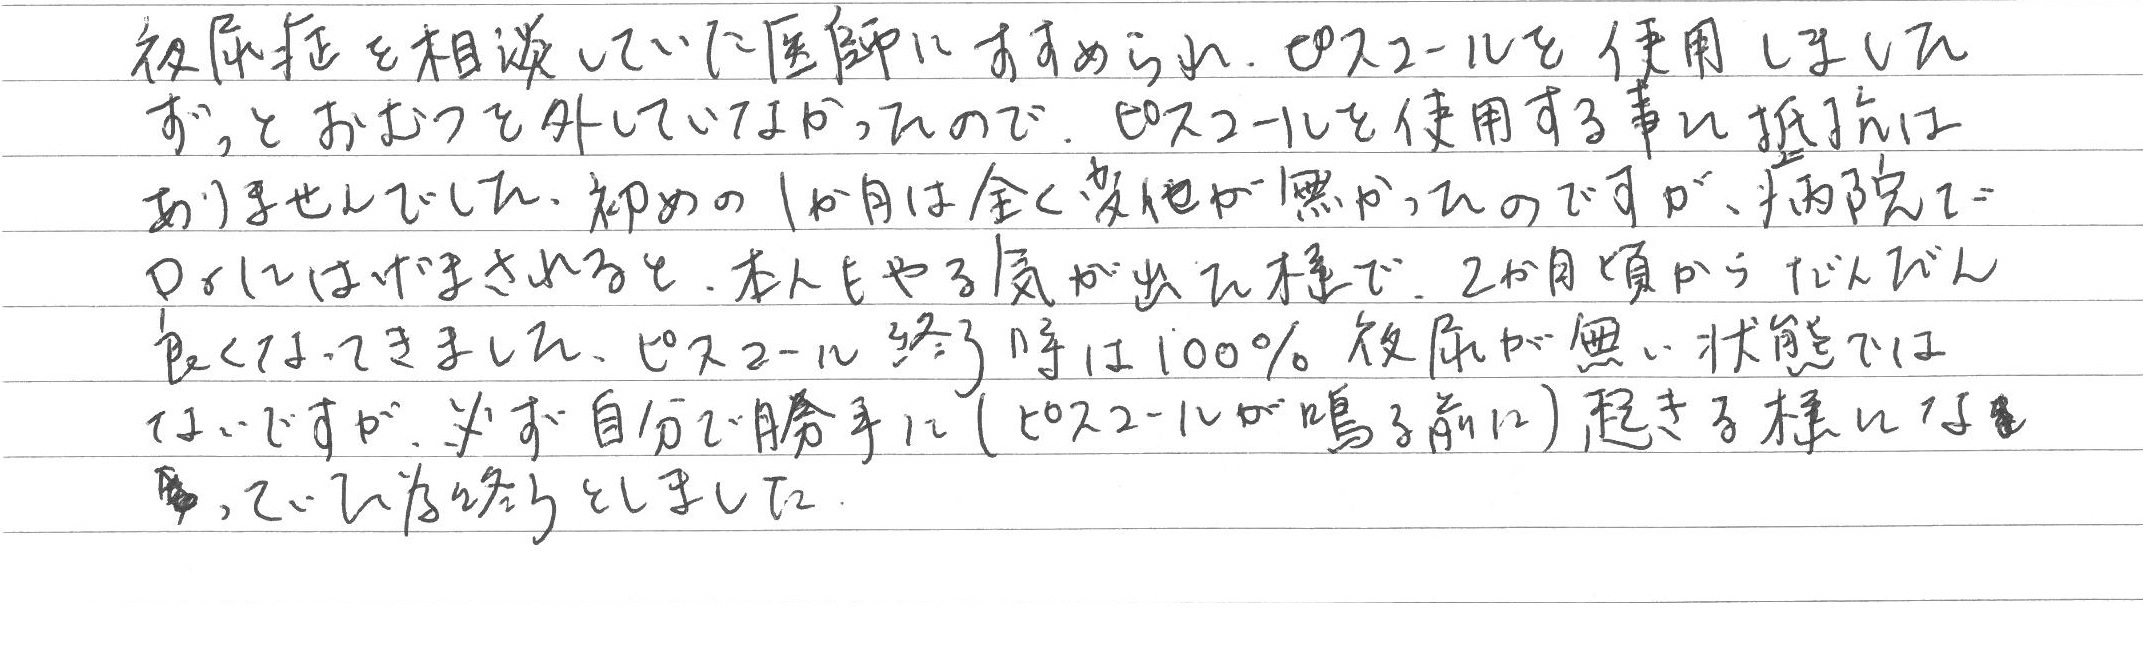 夜尿症を相談していた医師にすすめられ、ピスコールを使用しました
ずっとおむつを外していなかったので、ピスコールを使用する事に抵抗は
ありませんでした、初めの1か月は全く変化が無かったのですが、病院で
Drにはげまされると、本人もやる気が出た様で、2か月頃からだんだん
良くなってきました、ピスコール終了時は100%夜尿が無い状態では
ないですが、必ず自分で勝手に(ピスコールが鳴る前に)起きる様にな
っていた為終了としました.